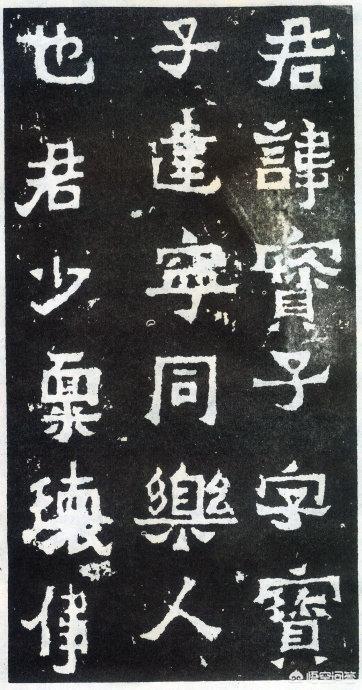 君諱寳子字寳
子建寧同樂人
也君少稟瓌偉
悟空问答